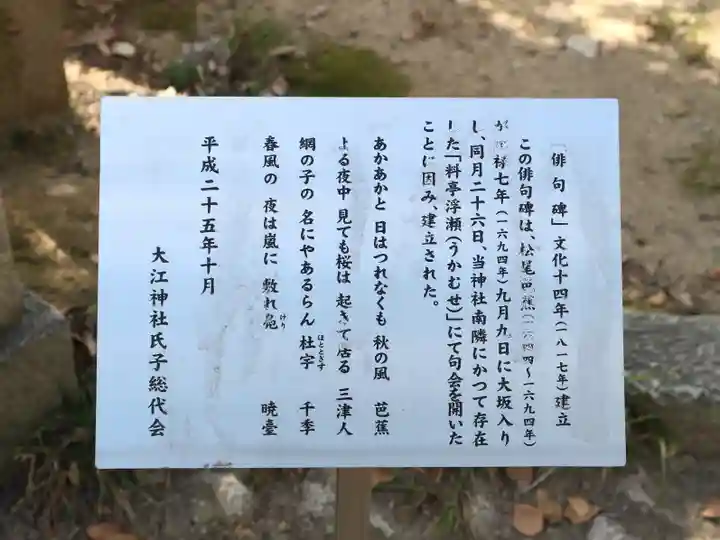 「俳句碑」文化十四年(一八一七年)建立
この俳句碑は、松尾芭蕉(一六四四〜一六九四年)
が 禄七年(一六九四年)九月九日に大坂入り
し、同月二十六日、当神社南隣にかつて存在
した「料亭浮瀬(うかむせ)」にて句会を開いた
ことに因み、建立された。
あかあかと 日はつれなくも 秋の風 芭蕉
よる夜中 見ても桜は 起きて居る 三津人
網の子の 名にやあるらん 杜宇 千季
ほととぎす
春風の 夜は嵐に 敷れ鳧 暁臺
けり
平成二十五年十月
大江神社氏子総代会